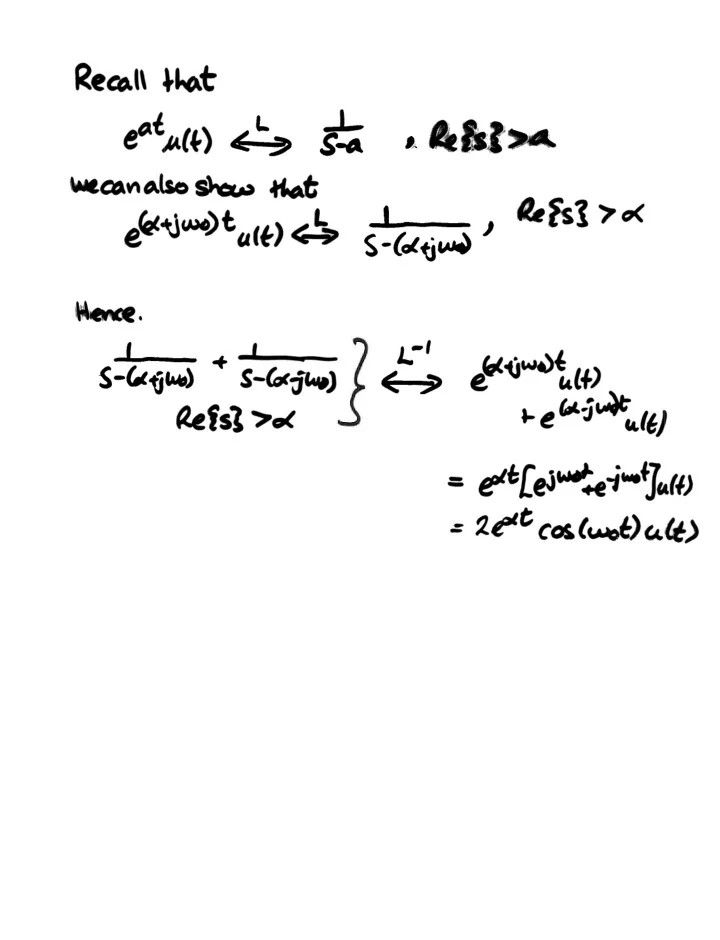 Recall that
e^{at} u(t) ⟷^{L} 1/(s-a) , Re{s}>a
we can also show that
e^{(α+jω₀)t} u(t) ⟷^{L} 1/(s-(α+jω₀)) , Re{s}>α
Hence.
1/(s-(α+jω₀)) + 1/(s-(α-jω₀)) } ⟷^{L^{-1}} e^{(α+jω₀)t} u(t)
Re{s}>α + e^{(α-jω₀)t} u(t)
= e^{αt}[e^{jω₀t}+e^{-jω₀t}]u(t)
= 2e^{αt} cos(ω₀t) u(t)